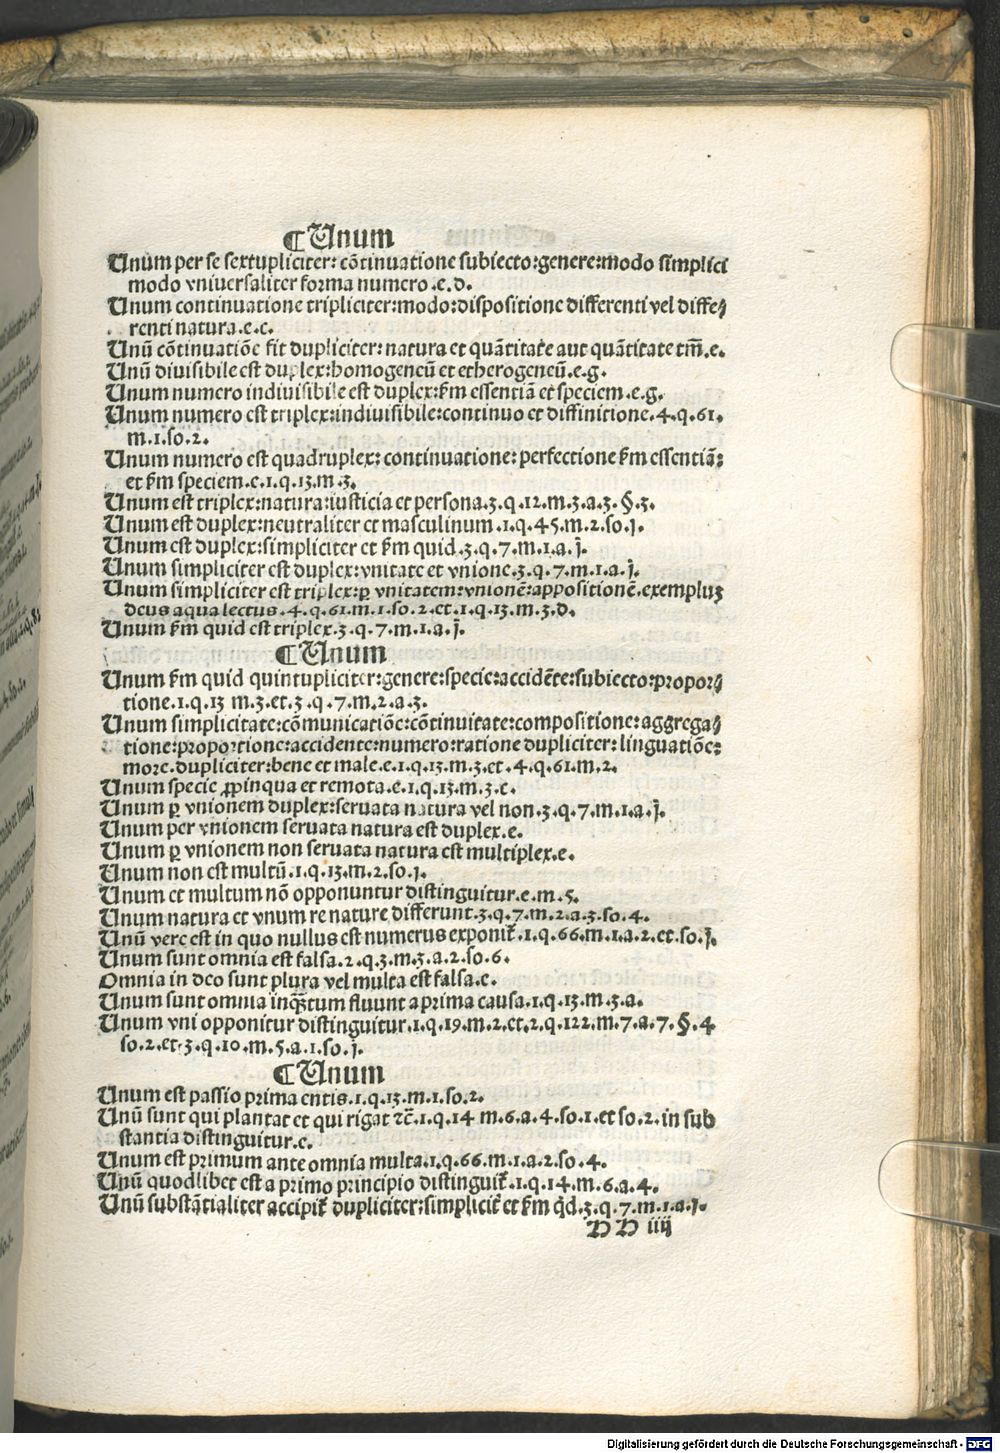 ¶ Unum
Unum per se sextupliciter: cōtinuatione subiecto: genere: modo simplici
modo vniuersaliter forma numero .e.d.
Unum continuatione tripliciter: modo: dispositione differenti vel diffe⸗
renti natura .e.c.
Unū cōtinuatiōe fit dupliciter: natura et quātitate aut quātitate tm̄ .e.
Unū diuisibile est duplex: homogeneū et etherogeneū .e.g.
Unum numero indiuisibile est duplex: ẜm essentiā et speciem .e.g.
Unum numero est triplex: indiuisibile: continuo et diffinitione .4.q.61.
m.1.so.2.
Unum numero est quadruplex: continuatione: perfectione ẜm essentiā:
et ẜm speciem .e.1.q.13.m.3.
Unum est triplex: natura: iusticia et persona .3.q.12.m.3.a.3.§.3.
Unum est duplex: neutraliter et masculinum .1.q.45.m.2.so.j.
Unum est duplex: simpliciter et ẜm quid .3.q.7.m.1.a.j.
Unum simpliciter est duplex: vnitate et vnione .3.q.7.m.1.a.j.
Unum simpliciter est triplex: ꝑ vnitatem: vnionē: appositionē. exempluꝫ
deus aqua lectus .4.q.61.m.1.so.2.et.1.q.13.m.3.d.
Unum ẜm quid est triplex .3.q.7.m.1.a.j.
¶ Unum
Unum ẜm quid quintupliciter: genere: specie: accidēte: subiecto: propor⸗
tione .1.q.13 m.3.et.3.q.7.m.2.a.3.
Unum simplicitate: cōmunicatiōe: cōtinuitate: compositione: aggrega⸗
tione: proportione: accidente: numero: ratione dupliciter: linguatiōe:
more. dupliciter: bene et male .e.1.q.13.m.3.et.4.q.61.m.2.
Unum specie ꝓpinqua et remota .e.1.q.13.m.3.c.
Unum ꝑ vnionem duplex: seruata natura vel non .3.q.7.m.1.a.j.
Unum per vnionem seruata natura est duplex .e.
Unum ꝑ vnionem non seruata natura est multiplex .e.
Unum non est multū .1.q.13.m.2.so.j.
Unum et multum nō opponuntur distinguitur .e.m.5.
Unum natura et vnum re nature differunt .3.q.7.m.2.a.3.so.4.
Unū vere est in quo nullus est numerus exponit᷑ .1.q.66.m.1.a.2.et.so.j.
Unum sunt omnia est falsa .2.q.3.m.3.a.2.so.6.
Omnia in deo sunt plura vel multa est falsa .e.
Unum sunt omnia inqꝫtum fluunt a prima causa .1.q.13.m.3.a.
Unum vni opponitur distinguitur .1.q.19.m.2.et.2.q.122.m.7.a.7.§.4
so.2.et.3.q.10.m.5.a.1.so.j.
¶ Unum
Unum est passio prima entis .1.q.13.m.1.so.2.
Unū sunt qui plantat et qui rigat ⁊c̄ .1.q.14 m.6.a.4.so.1.et so.2. in sub
stantia distinguitur .e.
Unum est primum ante omnia multa .1.q.66.m.1.a.2.so.4.
Unū quodlibet est a primo principio distinguit᷑ .1.q.14.m.6.a.4.
Unū substātialiter accipit᷑ dupliciter: simplicit᷑ et ẜm qd̄ .3.q.7.m.1.a.j.
DD iiij
Digitalisierung gefördert durch die Deutsche Forschungsgemeinschaft - DFG